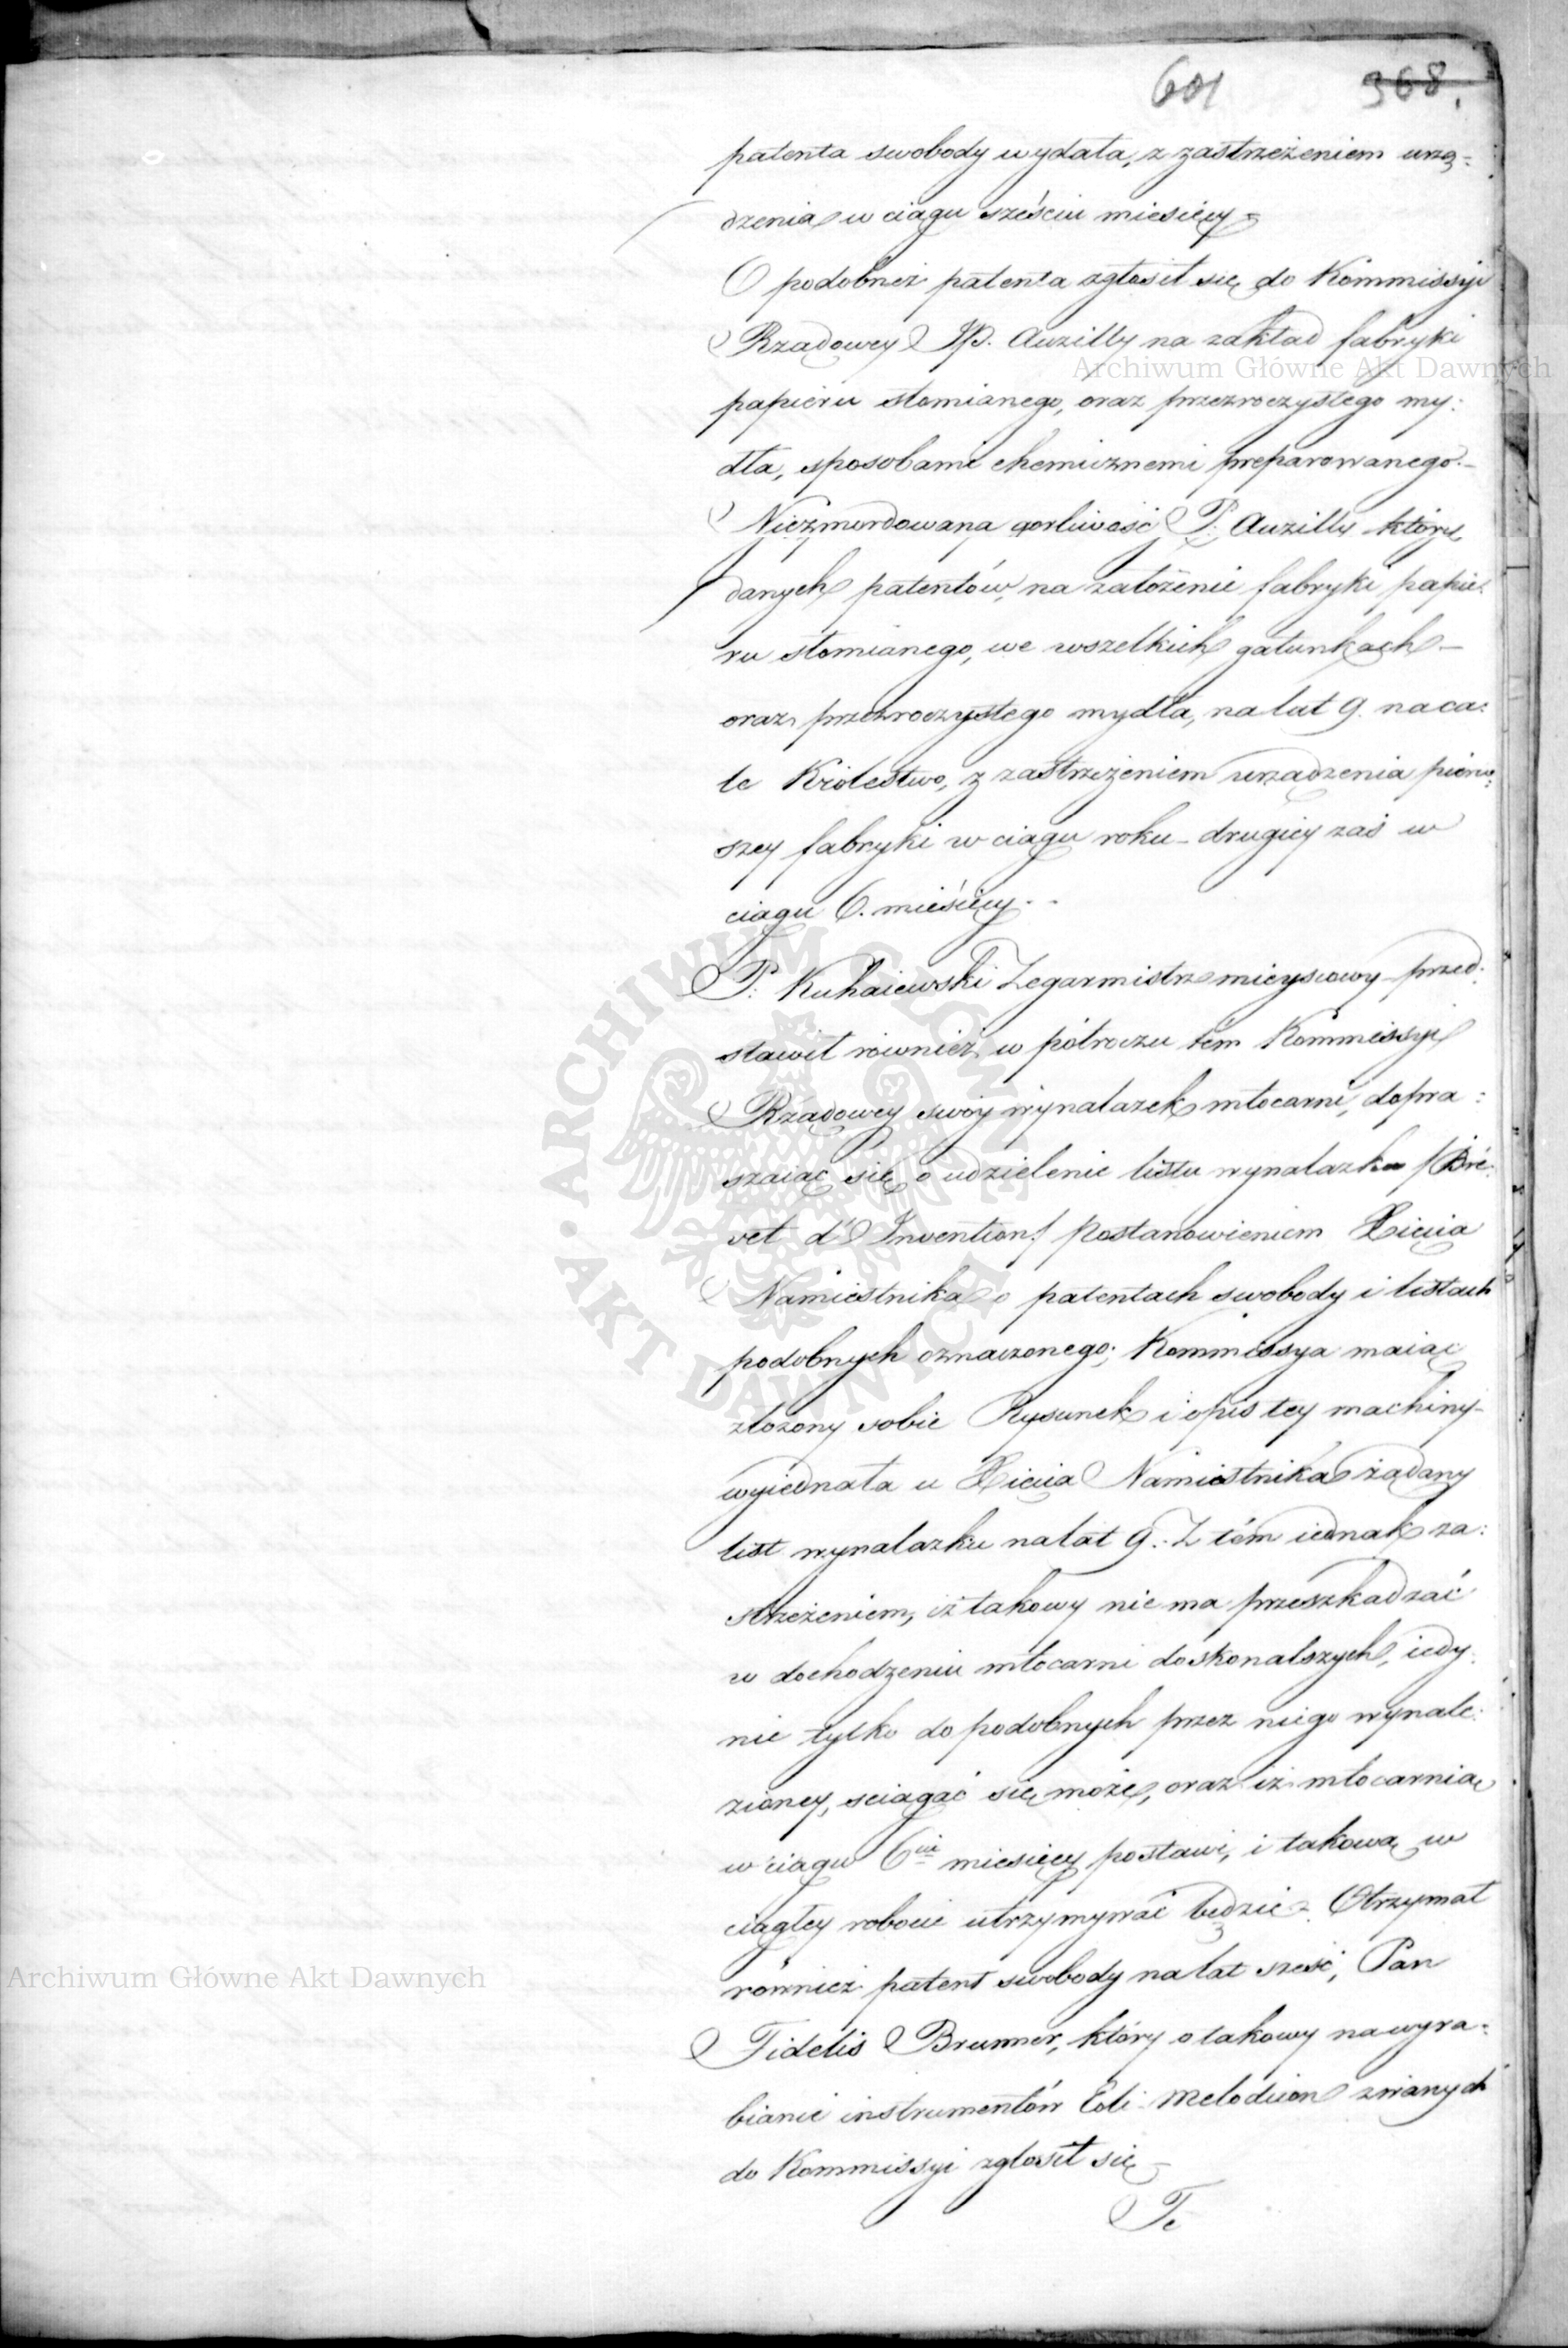 601 368.
patenta swobody wydała, z zastrzeżeniem urzą=
dzenia w ciągu sześciu miesięcy =
O podobnéż patenta zgłosił się do Kommissyi
Rządowey JP. Auzilly na zakład fabryki
papieru słomianego, oraz przezroczystego my:
dła, sposobami chemicznemi preparowanego.–
Niezmordowana gorliwość P. Auzilly który
danych patentów, na założenie fabryki papie:
ru słomianego, we wszelkich gatunkach –
oraz przezroczystego mydła, na lat 9. na ca:
łe Królestwo, z zastrzeżeniem urządzenia pierw:
szey fabryki w ciągu roku – drugiey zaś w
ciągu 6. miesięcy. –
P: Kuhaiewski Zegarmistrz mieyscowy – przed:
stawił również w półroczu tém Kommissyi
Rządowey swóy wynalazek młocarni, dopra:
szaiąc się o udzielenie listu wynalazku /Bré:
vet d'Invention/ Postanowieniem Xięcia
Namiestnika o patentach swobody i listach
podobnych oznaczonego; Kommissya maiąc
złożony sobie Rysunek i opis tey machiny –
wyiednała u Xięcia Namiestnika żądany
list wynalazku na lat 9.: Z tém iednak za:
strzeżeniem, iż takowy nie ma przeszkadzać
w dochodzeniu młocarni doskonalszych, iedy:
nie tylko do podobnych przez niego wynale:
zioney, sciągać się może, oraz iż młocarnią
w ciągu 6ciu miesięcy postawi, i takową w
ciągłey robocie utrzymywać będzie. Otrzymał
również patent swobody na lat sześć, Pan
Fidelis Brunner, który o takowy na wyra:
bianie instrumentów Eoli-Melodicon zwanych
do Kommissyi zgłosił się –
Te
Archiwum Główne Akt Dawnych
Archiwum Główne Akt Dawnych
ARCHIWUM GŁÓWNE · AKT DAWNYCH